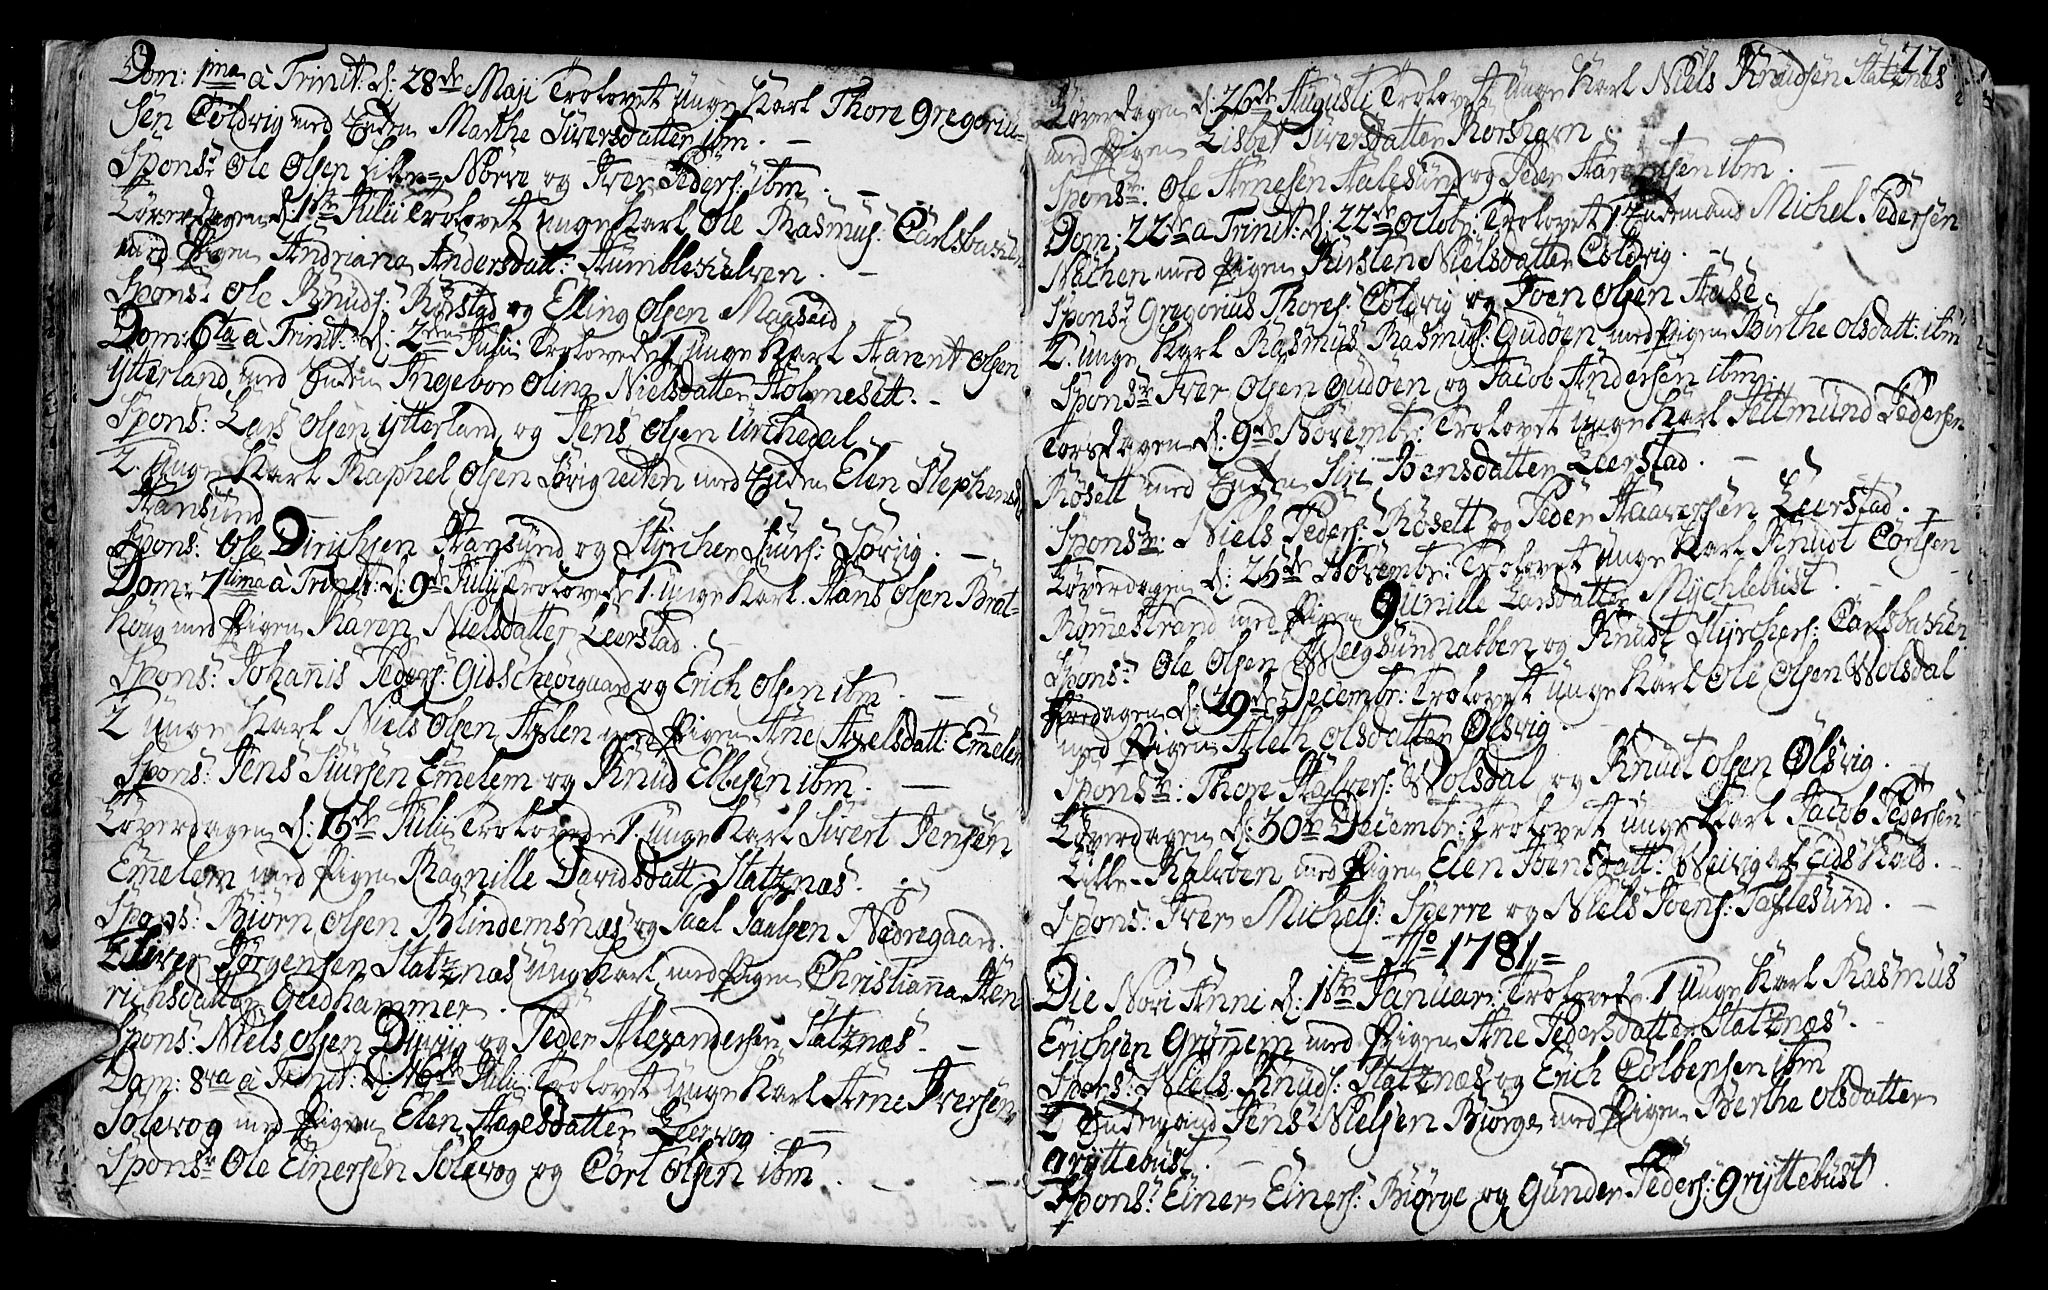 Dom: 1ma à Trinit: d: 28de Maji Trolovet unge Karl Thore Gregorius-
sen Coldvig med Enken Marthe Siversdatter ibm. -
Spons: Ole Olsen Lille-Nörve og Iver Peders: ibm. -
Löverdagen d: 1ste Julii Trolovet unge Karl Ole Rasmus: Carlsbachen
med Pigen Andriana Andersdatt: Humblehalsen. -
Spons: Ole Knuds: Rörstad og Elling Olsen Magseid -
Dom: 6ta à Trinit: d: 2den Julii Trolovede 1. unge Karl Aarent Olsen
Ytterland med Enken Ingebor Olina Nielsdatter Holmesett. -
Spons: Lars Olsen Ytterland og Jens Olsen Urchedal
2. Unge Karl Raphel Olsen Lövignechen med Enken Elen Stephensd
Hansund
Spons: Ole Dirichsen Hansund og Styrcher Siurs: Lövig. -
Dom: 7tima à Trinit: d: 9de Julii Trolovede 1. unge Karl Hans Olsen Brat-
houg med Pigen Karen Nielsdatter Leerstad.
Spons: Johannis Peders: Gidscheörguard og Erich Olsen ibm. -
2 unge Karl Niels Olsen Hyslen med Pigen Ane Axelsdatt: Emelem
Spons: Jens Siursen Emelem og Knud Ellesen ibm. -
Löverdagen d: 16de Julii Trolovede 1. unge Karl Sivert Jensen
Emelem med Pigen Ragnille Davidsdatt: Statznæs.
Spons: Biörn Olsen Blindemsnæs og Paal Paalsen Nedregaard.
2 Iver Jörgensen Statznæs unge Karl med Pigen Christianna Hen
richsdatter Geedhammer.
Spons: Niels Olsen Diviig og Peder Alexandersen Statznæs. -
Dom: 8va à Trinit: d: 16de Julii Trolovet unge Karl Arne Iversen
Solevog med Pigen Elen Aagesdatter Leervog. -
Sponsr Ole Einersen Solevog og Cort Olsen ibm. -
77
Löverdagen d: 26de Augusti Trolovet unge Karl Niels Knudsen Statznæs
med Pigen Lisbet Siversdatter Korshavn.
Sponsr: Ole Arnesen Aalesund og Peder Aarentsen ibm. -
Dom: 22da à Trinit: d: 22de Octob: Trolovet 1 Enkemand Michel Pedersen
Nachen med Pigen Kirsten Nielsdatter Coldvig. -
Spons: Gregorius Thores: Coldvig og Joen Olsen Aase.
2. unge Karl Rasmus Rasmus: Gudöen med Pigen Birthe Olsdatt: ibm
Sponsr Iver Olsen Gudöen og Jacob Andersen ibm.
Torsdagen d: 9de Novembr: Trolovet unge Karl Feltmund Pedersen
Rösett med Enken Siri Joensdatter Leerstad. -
Sponsr: Niels Peders: Rösett og Peder Haaversen Leerstad. -
Löverdagen d: 25de Novembr: Trolovet unge Karl Knudt Cortsen
Römestrand med Pigen Gunille Larsdatter Mychlebust.
Spons: Ole Olsen Wegsundrabben og Knudt Styrchers: Carlsbachen
Fredagen d: 29de Decembr: Trolovet unge Karl Ole Olsen Wolsdal
med Pigen Aleth Olsdatter Ølsvig.
Sponsr: Thore Halvers: Wolsdal og Knudt Olsen Ølsvig.
Löverdagen d: 30te Decembr: Trolovet unge Karl Jacob Pedersen
Lille-Kalvöen med Pigen Elen Joensdatt: Weivig af Eids Kald. -
Spons: Iver Michels: Sperre og Niels Joens: Taftesund. -
= Ao 1781 =
Die Novi Anni d: 1ste Januar: Trolovede 1 Unge Karl Rasmus
Erichsen Grönnem med Pigen Ane Pedersdatter Statznæs. -
Spons: Niels Knuds: Statznæs og Erich Colbensen ibm
2 Enkemand Jens Nielsen Biörge med Pigen Berthe Olsdatter
Gryttebust.
Spons: Einer Einers: Biörge og Gunder Peders: Gryttebust.